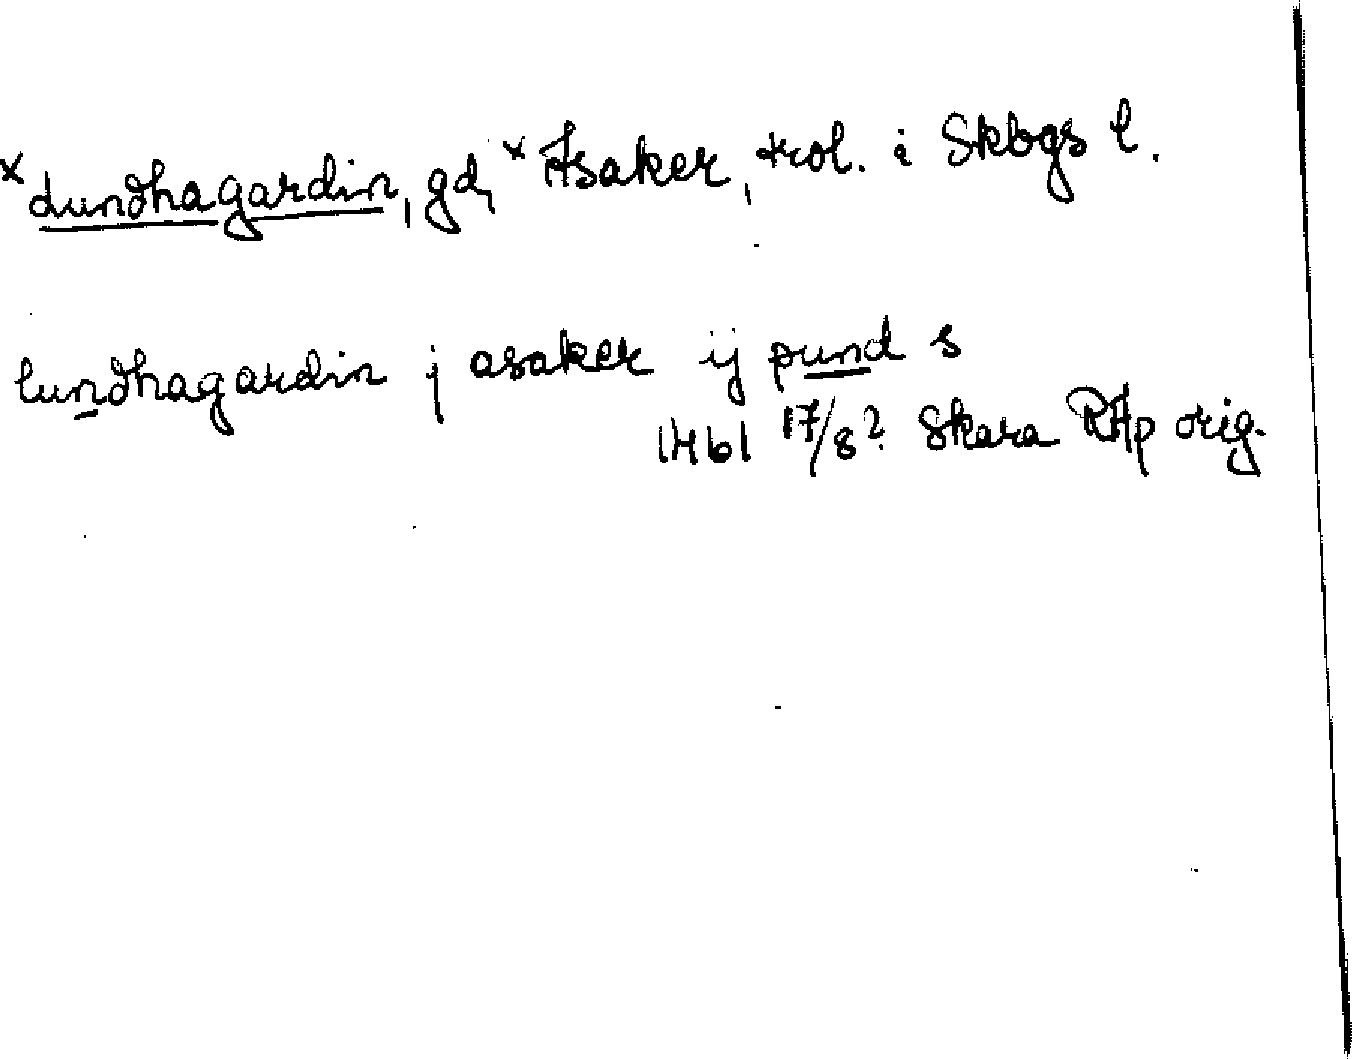 × Lundhagardin, gd, × Asaker, trol. i Skbgs l.
lundhagardin j asaker ij pund s
1461 17/8? Skara RAp orig.